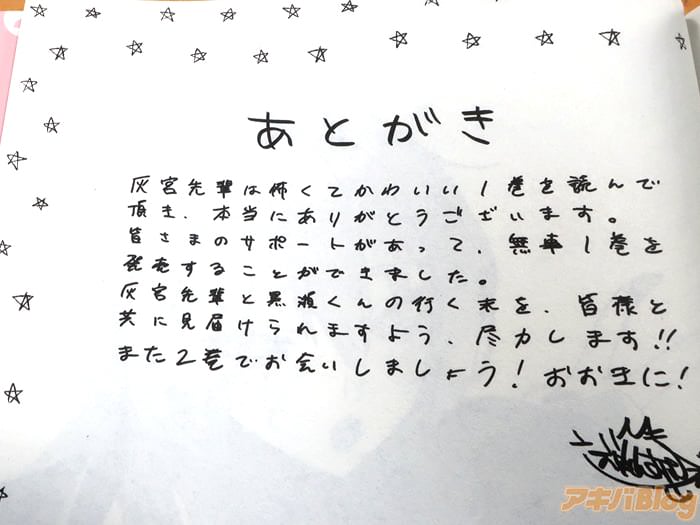 あとがき
灰宮先輩は怖くてかわいい1巻を読んで
頂き、本当にありがとうございます。
皆さまのサポートがあって、無事1巻を
発売することができました。
灰宮先輩と黒瀬くんの行く末を、皆様と
共に見届けられますよう、尽力します!!
また2巻でお会いしましょう!おおきに!
アキバBlog